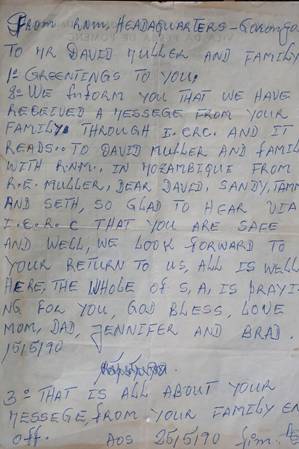 From RNM. HEADAQUARTERS - GORONGOSA
TO MR DAVID MULLER AND FAMILY
1º GREETINGS TO YOU.
2º WE INFORM YOU THAT WE HAVE
RECEIVED A MESSEGE FROM YOUR
FAMILY. THROUGH I.CRC. AND IT
READS.. TO DAVID MULLER AND FAMILY
WITH R.N.M., IN MOZAMBIQUE FROM
R.E. MULLER, DEAR DAVID, SANDY, TAMMY
AND SETH, SO GLAD TO HEAR VIA
I.C.R.C THAT YOU ARE SAFE
AND WELL, WE LOOK FORWARD TO
YOUR RETURN TO US, ALL IS WELL
HERE, THE WHOLE OF S,A, IS PRAYI-
NG FOR YOU, GOD BLESS, LOVE
MOM, DAD, JENNIFER AND BRAD.
15/5/90
3º THAT IS ALL ABOUT YOUR
MESSEGE, FROM YOUR FAMILY EN
Off. AOS 25/5/90 fim.